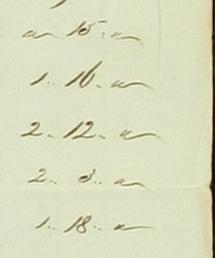 " 15 .. "
1 .. 16 .. "
2 .. 12 .. "
2 .. 8 .. "
1 .. 18 .. "